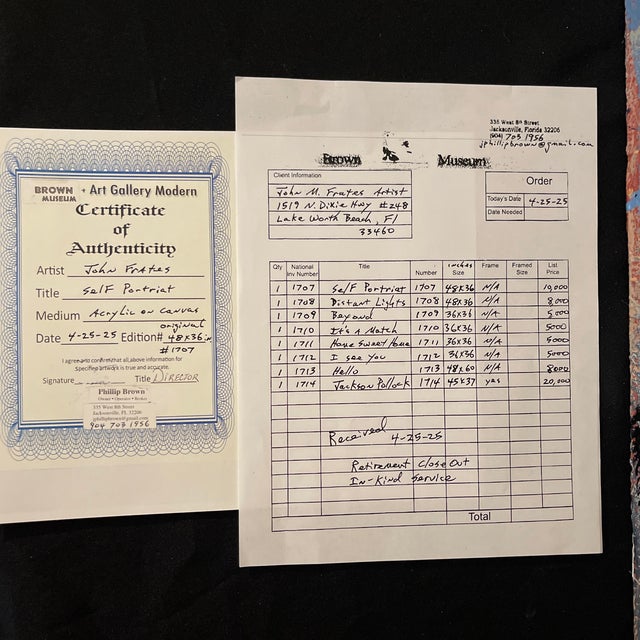 BROWN MUSEUM + Art Gallery Modern
Certificate
of
Authenticity
Artist John Frates
Title Self Portriat
Medium Acrylic on canvas
original
Date 4-25-25 Edition# 48x36 in
#1707
I agree to confirm that all above information for
Specified artwork is true and accurate.
Signature Title DIRECTOR
Phillip Brown
Owner • Operator • Broker
335 West 8th Street
Jacksonville, FL 32206
jphillipbrown@gmail.com
904 703 1956
335 West 8th Street
Jacksonville, Florida 32206
(904) 703 1956
jphillipbrown@gmail.com
Brown Museum
Client Information
John M. Frates Artist
1519 N. Dixie Hwy #248
Lake Worth Beach, Fl
33460
Order
Today's Date 4-25-25
Date Needed
Qty National Inv Number Title Number inches Size Frame Framed Size List Price
1 1707 Self Portriat 1707 48x36 N/A 10,000
1 1708 Distant Lights 1708 48x36 N/A 8,000
1 1709 Beyond 1709 36x36 N/A 5,000
1 1710 It's a Match 1710 36x36 N/A 5000
1 1711 Home Sweet Home 1711 36x36 N/A 5000
1 1712 I see you 1712 36x36 N/A 5000
1 1713 Hello 1713 48x60 N/A 8000
1 1714 Jackson Pollock 1714 45x37 yes 20,000
Received 4-25-25
Retirement Close Out
In-Kind Service
Total